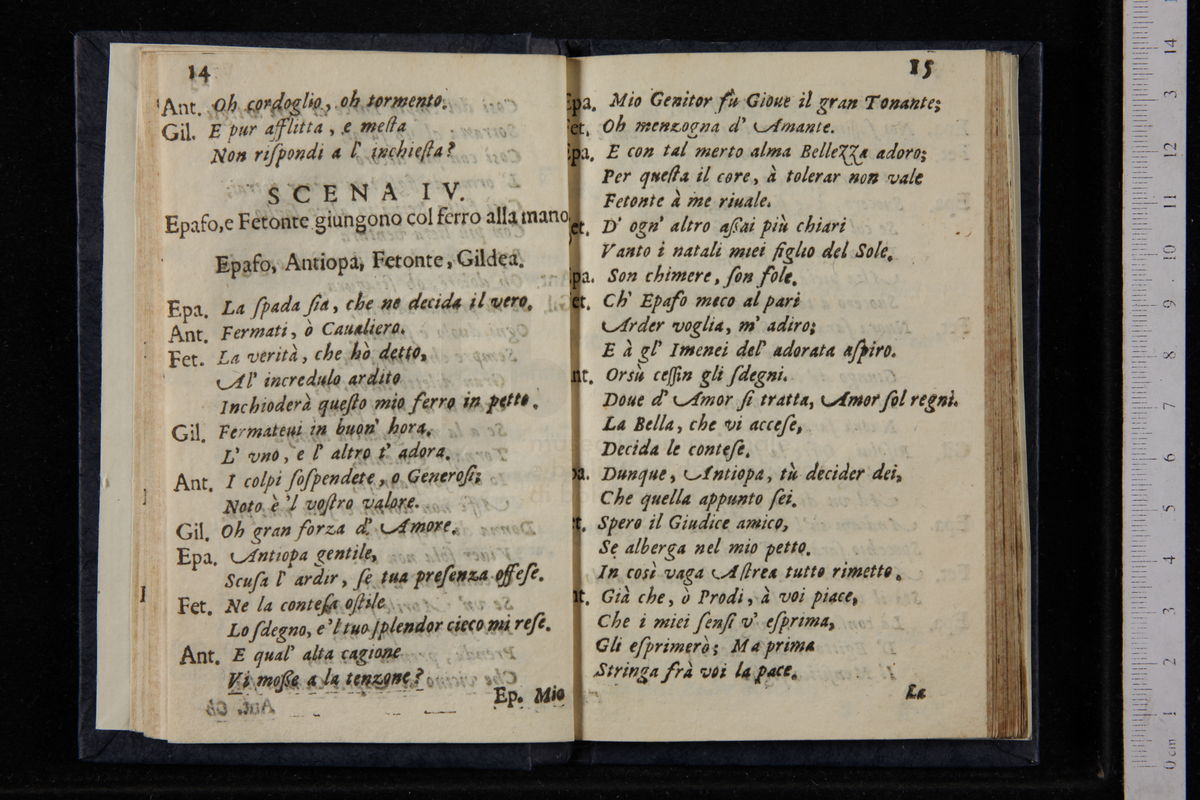 14
Ant. Oh cordoglio, oh tormento.
Gil. E pur afflitta, e meſta
Non riſpondi a l' inchieſta?
SCENA IV.
Epafo, e Fetonte giungono col ferro alla mano
Epafo, Antiopa, Fetonte, Gildea.
Epa. La ſpada ſia, che ne decida il vero.
Ant. Fermati, ò Caualiero.
Fet. La verità, che hò detto,
Al' incredulo ardito
Inchioderà queſto mio ferro in petto.
Gil. Fermateui in buon' hora.
L' vno, e l' altro t' adora.
Ant. I colpi ſoſpendete, o Generoſi;
Noto è 'l voſtro valore.
Gil. Oh gran forza d' Amore.
Epa. Antiopa gentile,
Scuſa l' ardir, ſe tua preſenza offeſe.
Fet. Ne la conteſa oſtile
Lo ſdegno, e 'l tuo ſplendor cieco mi reſe.
Ant. E qual' alta cagione
Vi moſſe a la tenzone?
Ep. Mio
15
Epa. Mio Genitor fù Gioue il gran Tonante;
Fet. Oh menzogna d' Amante.
Epa. E con tal merto alma Bellezza adoro;
Per queſta il core, à tolerar non vale
Fetonte à me riuale.
Fet. D' ogn' altro aſſai più chiari
Vanto i natali miei figlio del Sole.
pa. Son chimere, ſon fole.
et. Ch' Epafo meco al pari
Arder voglia, m' adiro;
E à gl' Imenei del' adorata aſpiro.
nt. Orsù ceſſin gli ſdegni.
Doue d' Amor ſi tratta, Amor ſol regni.
La Bella, che vi acceſe,
Decida le conteſe.
pa. Dunque, Antiopa, tù decider dei,
Che quella appunto ſei.
et. Spero il Giudice amico,
Se alberga nel mio petto.
In così vaga Aſtrea tutto rimetto.
nt. Già che, ò Prodi, à voi piace,
Che i miei ſenſi v' eſprima,
Gli eſprimerò; Ma prima
Stringa frà voi la pace.
La